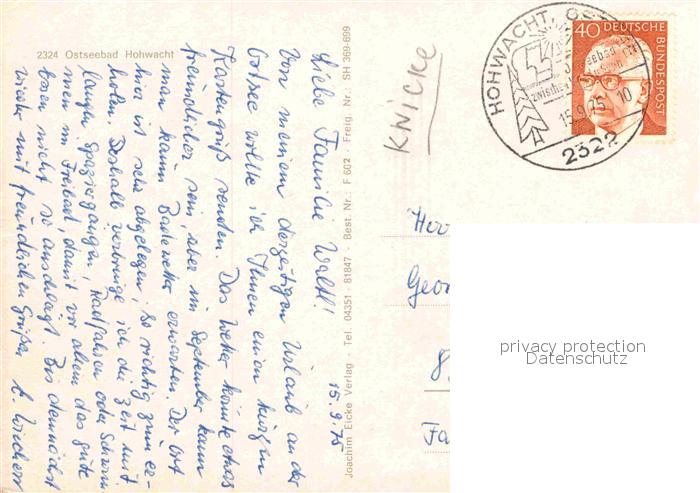 2324 Ostseebad Hohwacht
15. 9. 75
Liebe Familie Waltl!
Von meinem derzeitigen Urlaub an der
Ostsee wollte ich Ihnen einen kurzen
Kartengruß senden. Das Wetter könnte etwas
freundlicher sein, aber im September kann
man kaum Badewetter erwarten. Der Ort
hier ist sehr abgelegen, so richtig zum er-
holen. Deshalb verbringe ich die Zeit mit
langen Spaziergängen, Radfahren oder Schwim-
men im Freibad, damit vor allem das gute
Essen nicht so anschlägt. Bis demnächst
wieder mit freundlichen Grüßen,
Joachim Eicke Verlag · Tel. 04351 · 81847 · Best. Nr.: F 602 · Freig. Nr.: SH 369-699
KNICKE
HOHWACHT, OST
zwischen
15.9.75 10
2322
40 DEUTSCHE
BUNDESPOST
Herr
Geor
8
Fa
privacy protection
Datenschutz